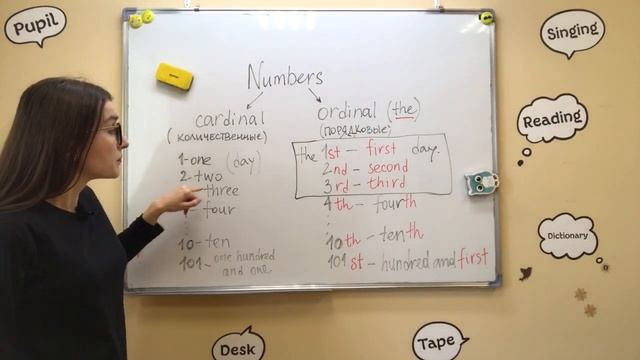 Pupil
Singing
Reading
Dictionary
Desk
Tape
Numbers
cardinal
(количественные)
1-one (day)
2-two
three
four
10-ten
101-one hundred
and one
ordinal (the)
(порядковые)
the 1st - first day.
2nd - second
3rd - third
4th - fourth
10th - tenth
101st - hundred and first